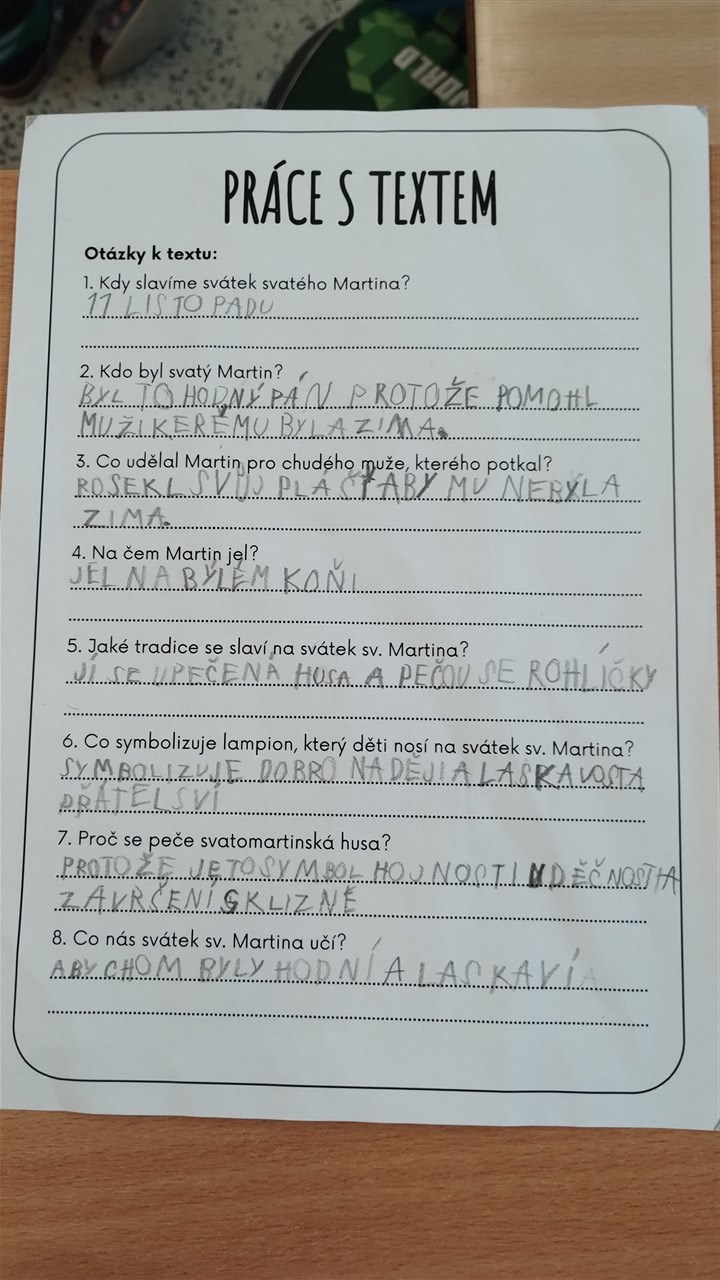 WORLD
PRÁCE S TEXTEM
Otázky k textu:
1. Kdy slavíme svátek svatého Martina?
11 LISTOPADU
2. Kdo byl svatý Martin?
BYL TO HODNÝ PÁN PROTOŽE POMOHL
MUŽI KERÉMU BYLA ZIMA.
3. Co udělal Martin pro chudého muže, kterého potkal?
ROSEKL SVŮJ PLÁŠŤ ABY MU NEBYLA
ZIMA.
4. Na čem Martin jel?
JEL NA BÝLÉM KOŇI
5. Jaké tradice se slaví na svátek sv. Martina?
JÍ SE UPEČENÁ HUSA A PEČOU SE ROHLÍČKY
6. Co symbolizuje lampion, který děti nosí na svátek sv. Martina?
SYMBOLIZUJE DOBRO NADĚJI A LASKAVOSTA
PŘÁTELSVÍ
7. Proč se peče svatomartinská husa?
PROTOŽE JE TO SYMBOL HOJNOSTI VDĚČNOSTI A
ZÁVRŠENÍ SKLIZNĚ
8. Co nás svátek sv. Martina učí?
ABYCHOM BYLY HODNÍ A LASKAVÍ A